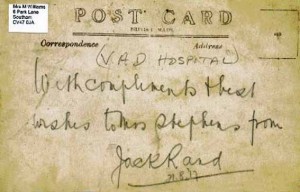 Mrs M Williams
6 Park Lane
Southam
CV47 0JA
POST CARD
Correspondence
Address
(V.A.D HOSPITAL)
With compliments & best
wishes to Mrs Stephens from
Jack Rand